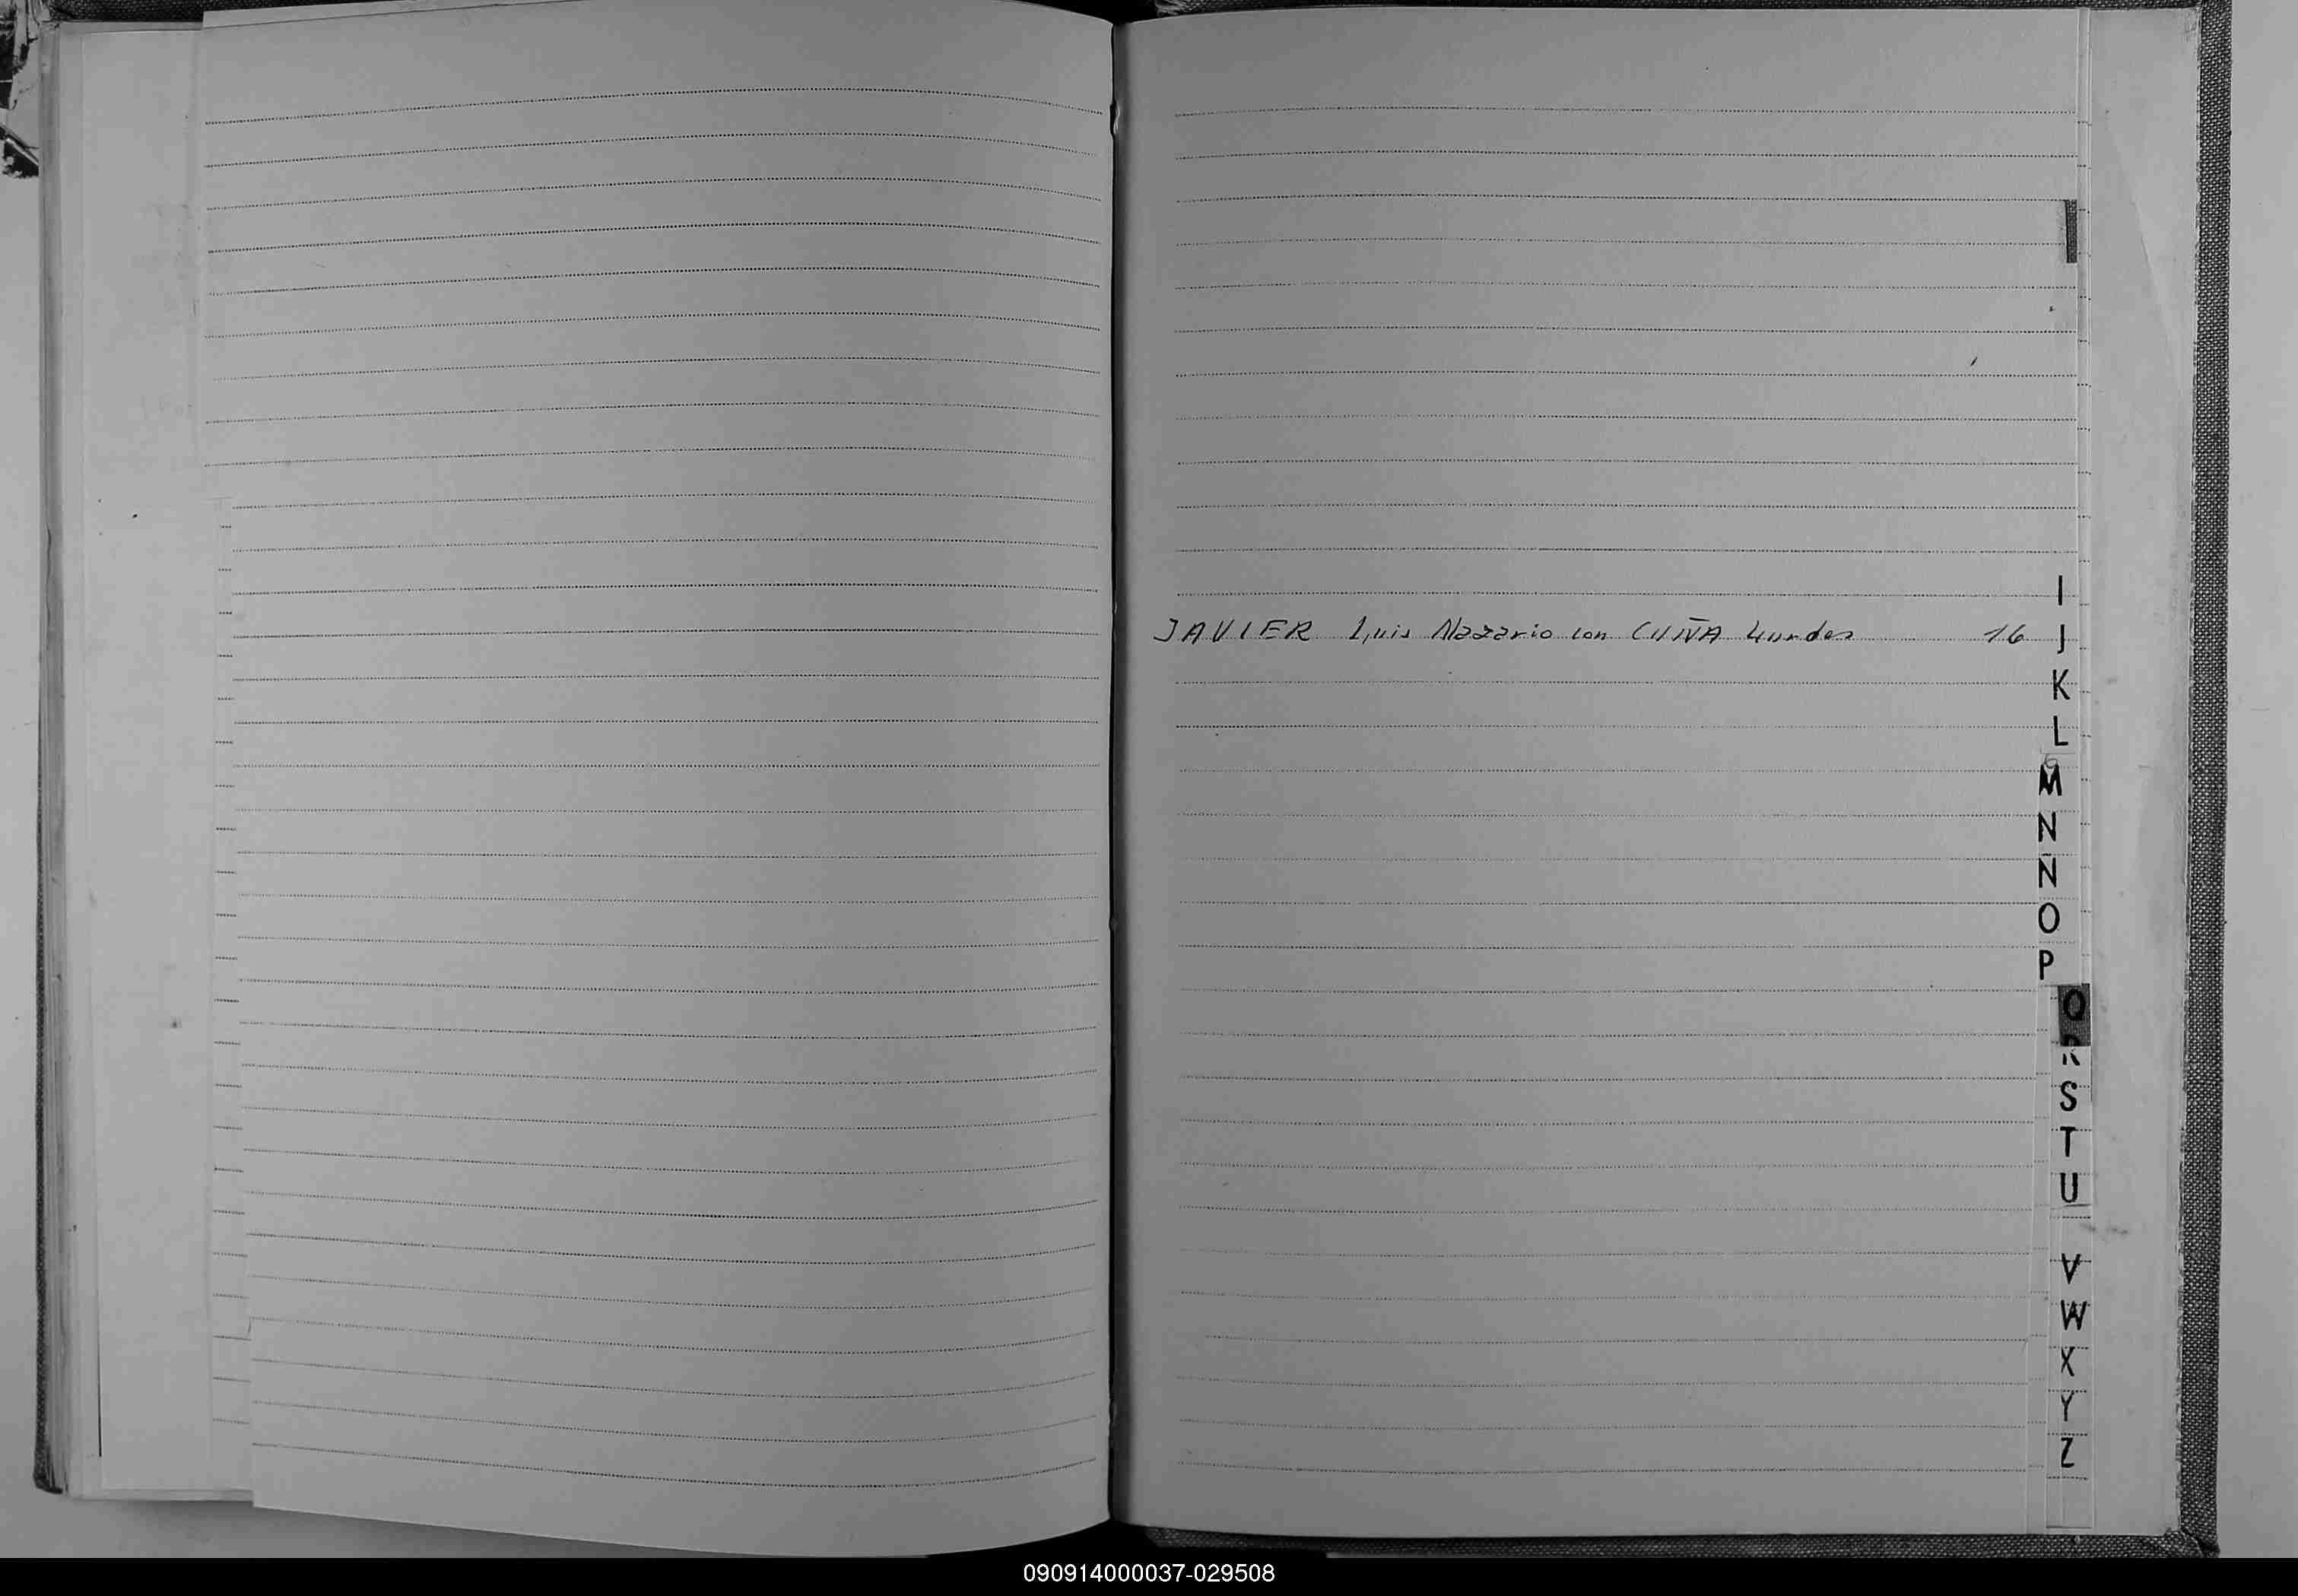 I
JAVIER Luis Nazario con CUÑA Lurdes 16
J
K
L
M
N
Ñ
O
P
Q
R
S
T
U
V
W
X
Y
Z
090914000037-029508